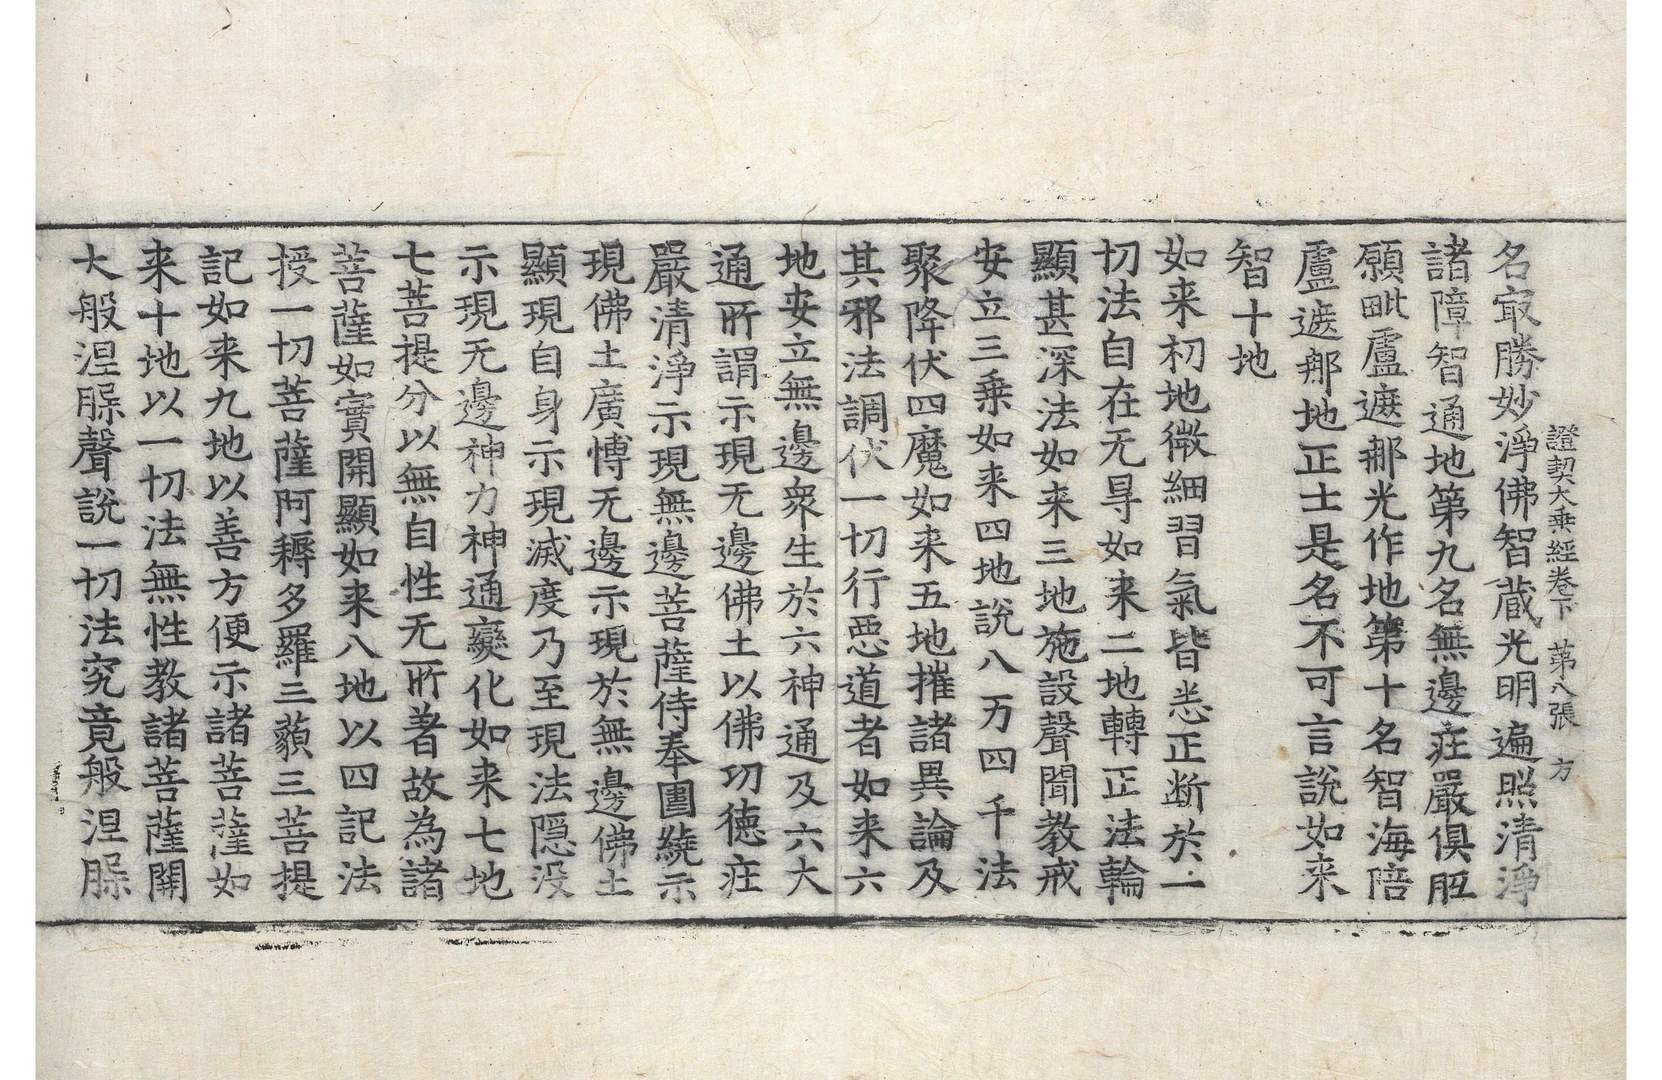 證契大乘經卷下 第八張 方
名㝡勝妙淨佛智蔵光明遍照清淨
諸障智通地第九名無邊庄嚴俱胝
願毗盧遮郍光作地第十名智海陪
盧遮郍地正士是名不可言說如来
智十地
如来初地微細習氣皆悉正断於一
切法自在无㝵如来二地轉正法輪
顯甚深法如来三地施設聲聞教戒
安立三乗如来四地說八万四千法
聚降伏四魔如来五地摧諸異論及
其邪法調伏一切行惡道者如来六
地安立無邊衆生於六神通及六大
通所謂示現无邊佛土以佛功德庄
嚴清淨示現無邊菩薩侍奉圍繞示
現佛土廣博无邊示現於無邊佛土
顯現自身示現滅度乃至現法隱没
示現无邊神力神通變化如来七地
七菩提分以無自性无所著故為諸
菩薩如實開顯如来八地以四記法
授一切菩薩阿耨多羅三藐三菩提
記如来九地以善方便示諸菩薩如
来十地以一切法無性教諸菩薩開
大般涅槃聲說一切法究竟般涅槃